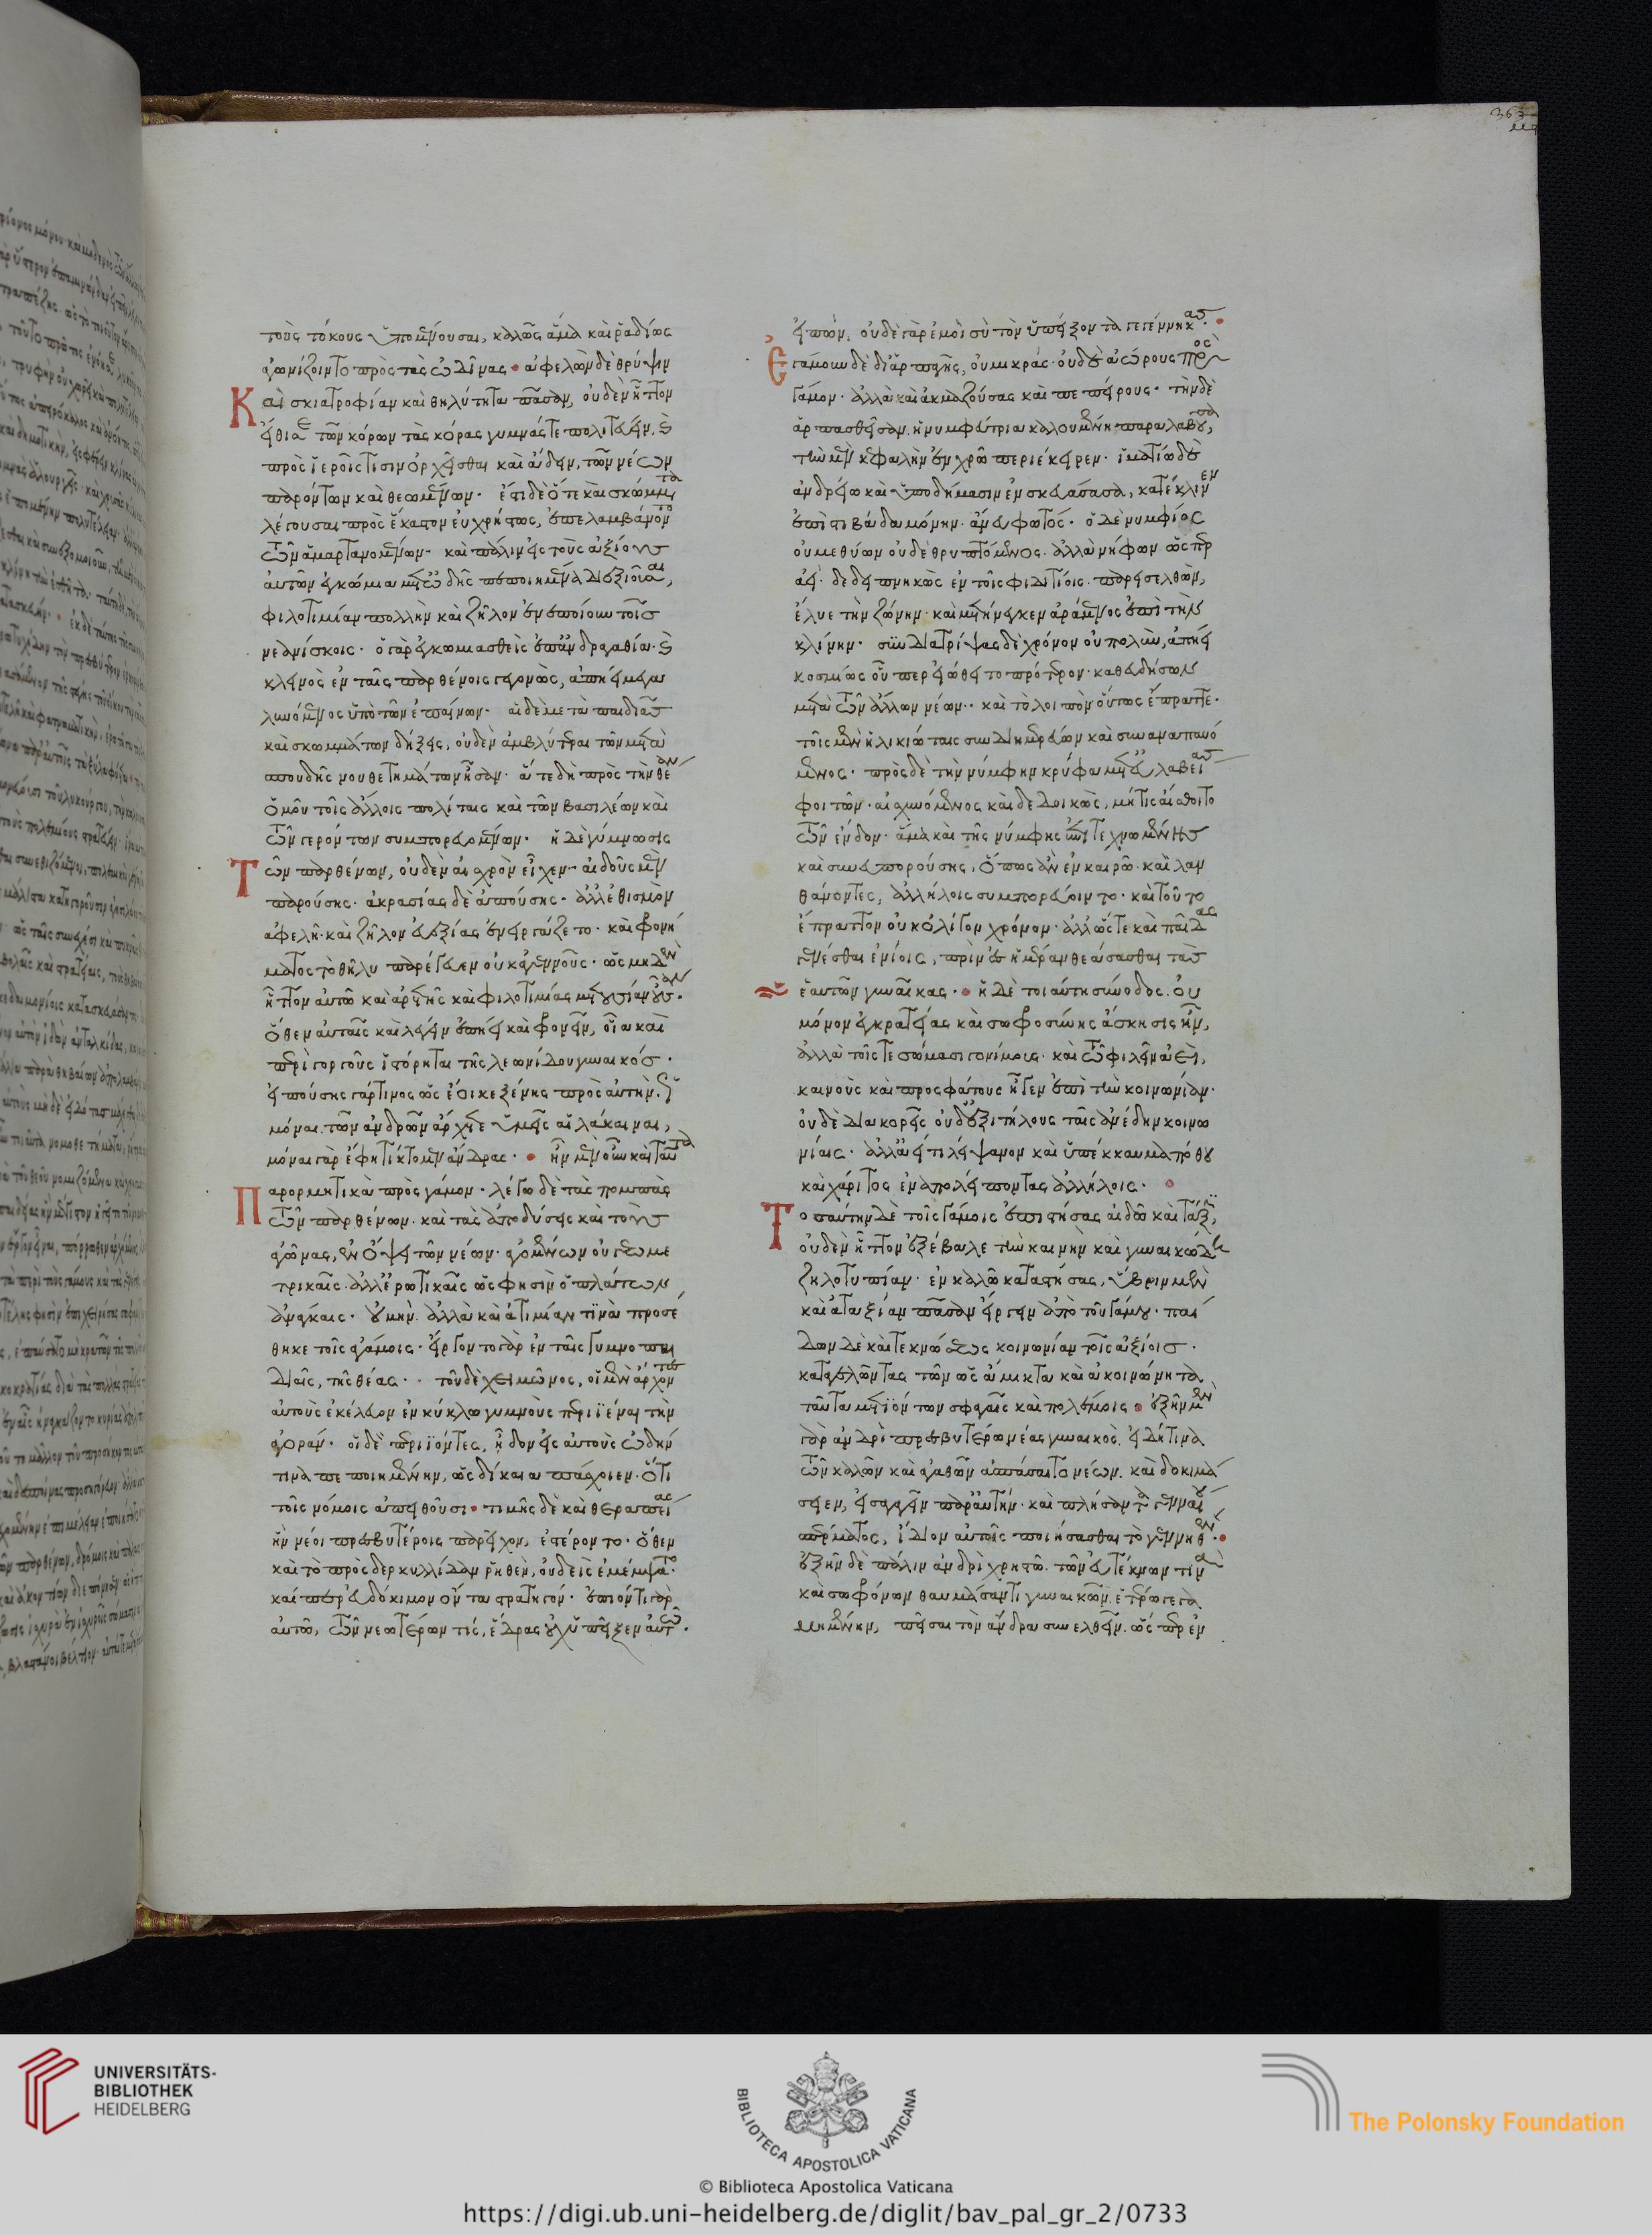 363
τοὺς τόκους ὑπομένουσαι, καλῶς ἅμα καὶ ῥαδίως
ἀγωνίζοιντο πρὸς τὰς ὠδῖνας· ἀφελὼν δὲ θρύψιν
Καὶ σκιατροφίαν καὶ θηλύτητα πᾶσαν, οὐδὲν ἧττον
εἴθισε τῶν κόρων τὰς κόρας γυμνάς τε πολιτεύειν, καὶ
πρὸς ἱεροῖς τισιν ὀρχεῖσθαι καὶ ἄιδειν, τῶν νέων
παρόντων καὶ θεωμένων· ἔστι δὲ ὅτε καὶ σκώμματα
λέγουσαι πρὸς ἕκαστον εὐχρήστως, ἐπελαμβάνοντο
τῶν ἁμαρτανομένων· καὶ πάλιν εἰς τοὺς ἀξίους
αὐτῶν ἐγκώμια μετ' ὠδῆς πεποιημένα διεξιοῦσαι,
φιλοτιμίαν πολλὴν καὶ ζῆλον ἐνεποίουν τοῖς
νεανίσκοις· ὁ γὰρ ἐγκωμιασθεὶς ἐπ' ἀνδραγαθίαι καὶ
κλεινὸς ἐν ταῖς παρθένοις γεγονὼς, ἀπήει μεγα
λυνόμενος ὑπὸ τῶν ἐπαίνων· αἱ δὲ μετὰ παιδιᾶς
καὶ σκωμμάτων δήξεις, οὐδὲν ἀμβλύτεραι τῶν μετὰ
σπουδῆς νουθετημάτων ἦσαν· ἅτε δὴ πρὸς τὴν θέαν
ὁμοῦ τοῖς ἄλλοις πολίταις καὶ τῶν βασιλέων καὶ
τῶν γερόντων συμπορευομένων· ἡ δὲ γύμνωσις
Τῶν παρθένων, οὐδὲν αἰσχρὸν εἶχεν· αἰδοῦς μὲν
παρούσης· ἀκρασίας δὲ ἀπούσης· ἀλλ' ἐθισμὸν
ἀφελῆ· καὶ ζῆλον εὐεξίας ἐνειργάζετο· καὶ φρονή
ματος τὸ θῆλυ παρέγευεν οὐκ ἀγεννοῦς· ὡς μηδὲν
ἧττον αὐτῶ καὶ ἀρετῆς καὶ φιλοτιμίας μετουσίαν οὖσαν·
ὅθεν αὐταῖς καὶ λέγειν ἐπήει καὶ φρονεῖν, οἷα καὶ
περὶ γοργοῦς ἱστόρηται τῆς λεωνίδου γυναικός·
εἰπούσης γάρ τινος ὡς ἔοικε ξένης πρὸς αὐτὴν ὅτι
μόναι τῶν ἀνδρῶν ἄρχετε ὑμεῖς αἱ λάκαιναι,
μόναι γὰρ ἔφη τίκτομεν ἄνδρας· ἦν μὲν οὖν καὶ ταῦτα
Παρορμητικὰ πρὸς γάμον· λέγω δὲ τὰς πομπὰς
τῶν παρθένων· καὶ τὰς ἀποδύσεις καὶ τοὺς
ἀγῶνας, ἐν ὄψει τῶν νέων· ἀγομένων οὐ γεωμε
τρικαῖς· ἀλλ' ἐρωτικαῖς ὥς φησιν ὁ πλάτων
ἀνάγκαις· οὐ μὴν ἀλλὰ καὶ ἀτιμίαν τινὰ προσέ
θηκε τοῖς ἀγάμοις· εἴργοντο γὰρ ἐν ταῖς γυμνοπαι
δίαις, τῆς θέας· τοῦ δὲ χειμῶνος, οἱ μὲν ἄρχοντες
αὐτοὺς ἐκέλευον ἐν κύκλω γυμνοὺς περιϊέναι τὴν
ἀγοράν· οἱ δὲ περιϊόντες, ἦδον εἰς αὐτοὺς ὠδήν
τινα πεποιημένην, ὡς δίκαια πάσχοιεν· ὅτι
τοῖς νόμοις ἀπειθοῦσι· τιμῆς δὲ καὶ θεραπείας
ἣν νέοι πρεσβυτέροις παρεῖχον, ἐστέροντο· ὅθεν
καὶ τὸ πρὸς δερκυλλίδαν ῥηθὲν, οὐδεὶς ἐμέμψατο·
καίπερ εὐδόκιμον ὄντα στρατηγόν· ἐπιόντι γὰρ
αὐτῶ, τῶν νεωτέρων τίς, ἕδρας οὐχ ὑπεῖξεν αὐτῶ·
εἰπών, οὐδὲ γὰρ ἐμοὶ σὺ τὸν ὑπείξοντα γεγέννηκας·
Ἐγάμουν δὲ δι' ἁρπαγῆς, οὐ μικρὰς· οὐδὲ ἀώρους πρὸς
γάμον· ἀλλὰ καὶ ἀκμαζούσας καὶ πεπείρους· τὴν δὲ
ἁρπασθεῖσαν, ἡ νυμφεύτρια καλουμένη παραλαβοῦσα,
τὴν μὲν κεφαλὴν ἐν χρῶ περιέκειρεν· ἱματίω δὲ
ἀνδρείω καὶ ὑποδήμασιν ἐνσκευάσασα, κατέκλινεν
ἐπὶ στιβάδα μόνην· ἄνευ φωτός· ὁ δὲ νυμφίος
οὐ μεθύων οὐδὲ θρυπτόμενος· ἀλλὰ νήφων ὥσπερ
ἀεί· δεδειπνηκὼς ἐν τοῖς φιδιτίοις· παρεισελθὼν,
ἔλυε τὴν ζώνην· καὶ μετήνεγκεν ἀράμενος ἐπὶ τὴν
κλίνην· συνδιατρίψας δὲ χρόνον οὐ πολὺν, ἀπήει
κοσμίως οὗπερ εἰώθει τὸ πρότερον· καθευδήσων
μετὰ τῶν ἄλλων νέων· καὶ τὸ λοιπὸν οὕτως ἔπραττε·
τοῖς μὲν ἡλικιώταις συνδιημερεύων καὶ συναναπαυό
μενος· πρὸς δὲ τὴν νύμφην κρύφα μετ' εὐλαβείας
φοιτῶν· αἰσχυνόμενος καὶ δεδοικὼς, μή τις αἴσθοιτο
τῶν ἔνδον· ἅμα καὶ τῆς νύμφης ἐπιτεχνωμένης
καὶ συνευπορούσης, ὅπως ἂν ἐν καιρῶ καὶ λαν
θάνοντες, ἀλλήλοις συμπορεύοιντο· καὶ τοῦτο
ἔπραττον οὐκ ὀλίγον χρόνον· ἀλλ' ὥστε καὶ παῖδας
γενέσθαι ἐνίοις, πρὶν ἐν ἡμέραν θεάσασθαι τὰς
ἑαυτῶν γυναῖκας· ἡ δὲ τοιαύτη σύνοδος, οὐ
μόνον ἐγκρατείας καὶ σωφροσύνης ἄσκησις ἦν,
ἀλλὰ τοῖς τε σώμασι γονίμους· καὶ τῶ φιλεῖν ἀεὶ,
καινοὺς καὶ προσφάτους ἦγεν ἐπὶ τὴν κοινωνίαν·
οὐδὲ διακορεῖς οὐδ' ἐξιτήλους ταῖς ἀνέδην κοινω
νίαις· ἀλλ' ἀεί τι λείψανον καὶ ὑπέκκαυμα πόθου
καὶ χάριτος ἐναπολείποντας ἀλλήλοις·
Τοσαύτην δὲ τοῖς γάμοις ἐπιστήσας αἰδῶ καὶ τάξιν,
οὐδὲν ἧττον ἐξέβαλε τὴν κενὴν καὶ γυναικώδη
ζηλοτυπίαν· ἐν καλῶ καταστήσας, ὕβριν μὲν
καὶ ἀταξίαν πᾶσαν εἴργειν ἀπὸ τοῦ γάμου· παί
δων δὲ καὶ τεκνώσεως κοινωνίαν τοῖς ἀξίοις·
καταγελῶντας τῶν ὡς ἄμικτα καὶ ἀκοινώνητα
ταῦτα μετϊόντων σφαγαῖς καὶ πολέμοις· ἐξῆν μὲν
γὰρ ἀνδρὶ πρεσβυτέρω νέας γυναικὸς· εἰ δή τινα
τῶν καλῶν καὶ ἀγαθῶν ἀσπάσαιτο νέων· καὶ δοκιμά
σειεν, εἰσαγεῖν παρ' αὐτήν· καὶ πλήσαντα γενναίου
σπέρματος, ἴδιον αὐτοῖς ποιήσασθαι τὸ γεννηθέν·
ἐξῆν δὲ πάλιν ἀνδρὶ χρηστῶ· τῶν εὐτέκνων τινὰ
καὶ σωφρόνων θαυμάσαντι γυναικῶν, ἑτέρω γεγα
μημένην, πεῖσαι τὸν ἄνδρα συνελθεῖν, ὥσπερ ἐν
UNIVERSITÄTS-
BIBLIOTHEK
HEIDELBERG
BIBLIOTECA APOSTOLICA VATICANA
The Polonsky Foundation
© Biblioteca Apostolica Vaticana
https://digi.ub.uni-heidelberg.de/diglit/bav_pal_gr_2/0733